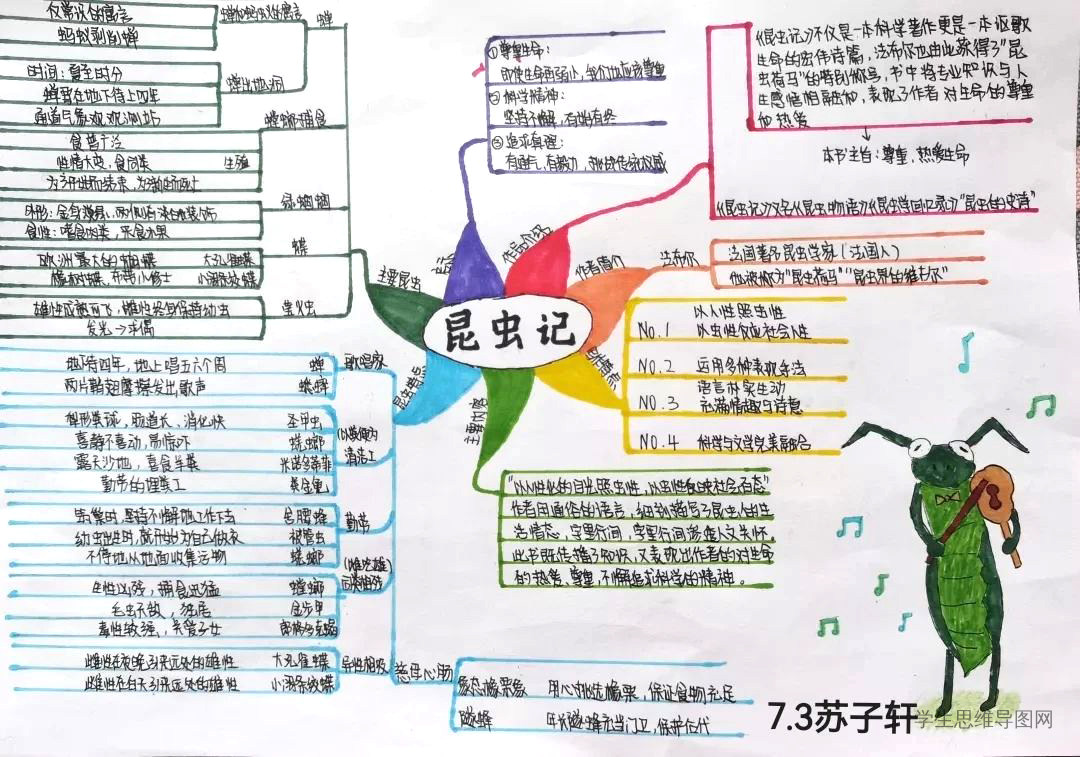 昆虫记
仅常识的寓言
蚂蚁剥削蝉
蝉和蚂蚁的寓言
蝉
时间：夏至时分
蝉要在地下待上四年
蝉出地洞
螳螂捕食
食普广泛
性情大变，食同类
生殖
外形：金身缠身，两侧有淡白装饰
食性：嗜食肉类，采食水果
绿蝈蝈
蝶
欧洲最大的蛾蝶
大孔雀蝶
小阔条纹蝶
雄性成熟可飞，雌性终身保持幼虫
发光→求偶
萤火虫
主要昆虫
①尊重生命：
即使生命再弱小，我们也应该尊重
②科学精神：
坚持不懈，有始有终
③追求真理：
有勇气，有毅力，挑战传统权威
作品介绍
《昆虫记》不仅是一本科学著作更是一本讴歌
生命的宏伟诗篇，法布尔也由此获得了"昆
虫荷马"的特别称号，书中将专业知识与人
生感悟相融如，表现了作者对生命的尊重
和热爱
本书主旨：尊重，热爱生命
《昆虫记》又名《昆虫物语》《昆虫学回忆录》为"昆虫的史诗"
作者简介
法布尔
法国著名昆虫学家（法国人）
他被称为"昆虫荷马""昆虫界的维吉尔"
写作特点
以人性照虫性
NO.1 以虫性反应社会人性
NO.2 运用多种表现手法
语言朴实生动
NO.3 充满情趣与诗意
NO.4 科学与文学完美融合
主要内容
"以人性化的目光照虫性，以虫性反映社会百态"
作者用通俗的语言，细致描写了昆虫的生
活情态，字里行间，字里行间荡漾人文关怀，
此书既传播了知识，又表现出作者的对生命
的热爱，尊重，不懈追求科学的精神。
昆虫特点
歌唱家
地待四年，地上唱五六个周 蝉
两片鞘翅摩擦发出歌声 蟋蟀
清洁工
梨形粪球，肠道长，消化快 圣甲虫
喜静不喜动，易惊吓 蜣螂
露天沙地，喜食羊粪 米诺多蒂菲
勤劳的埋粪工 粪金龟
勤劳
幼虫出生时，就开始为自己做衣 被管虫
不停地从地面收集活物
生性凶残，捕食迅猛 螳螂
毛虫不放，独居 金步甲
毒性较强，关爱子女 郎格多克蝎
异性相吸
雌性在夜晚引来远处的雄性 大孔雀蝶
雌性在白天引来远处的雄性 小阔条纹蝶
慈母心肠
用心挑选橡果，保证食物充足
隧蜂 年长隧蜂充当门卫，保护后代
7.3苏子轩
学生思维导图网